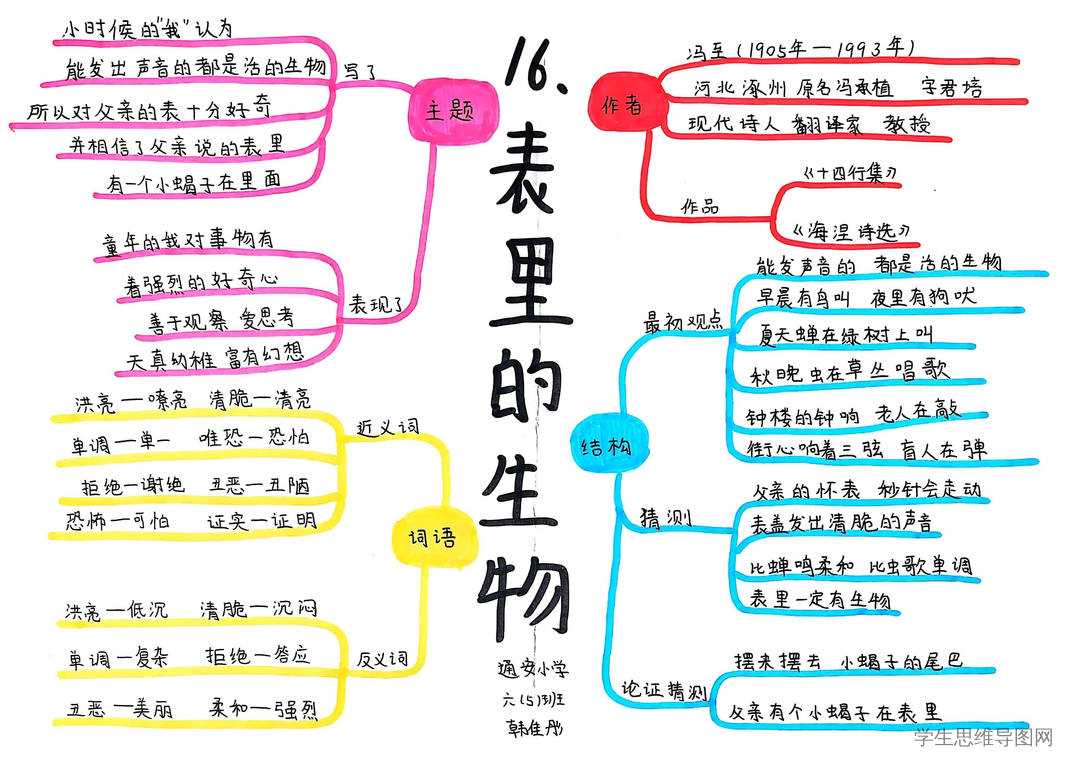 16.表里的生物
通安小学
六(5)班
作者
冯至(1905年—1993年)
河北涿州 原名冯承植 字君培
现代诗人 翻译家 教授
作品
《十四行集》
《海涅诗选》
主题
写了
小时候的“我”认为
能发出声音的都是活的生物
所以对父亲的表十分好奇
并相信了父亲说的表里
有一个小蝎子在里面
表现了
童年的我对事物有
着强烈的好奇心
善于观察 爱思考
天真幼稚 富有幻想
词语
近义词
洪亮—嘹亮 清脆—清亮
单调—单一 唯恐—恐怕
拒绝—谢绝 丑恶—丑陋
恐怖—可怕 证实—证明
反义词
洪亮—低沉 清脆—沉闷
单调—复杂 拒绝—答应
丑恶—美丽 柔和—强烈
结构
最初观点
能发声音的 都是活的生物
早晨有鸟叫 夜里有狗吠
夏天蝉在绿树上叫
秋晚虫在草丛唱歌
钟楼的钟响 老人在敲
街心响着三弦 盲人在弹
猜测
父亲的怀表 秒针会走动
表盖发出清脆的声音
比蝉鸣柔和 比虫歌单调
表里一定有生物
论证猜测
摆来摆去 小蝎子的尾巴
父亲有个小蝎子在表里
学生思维导图网